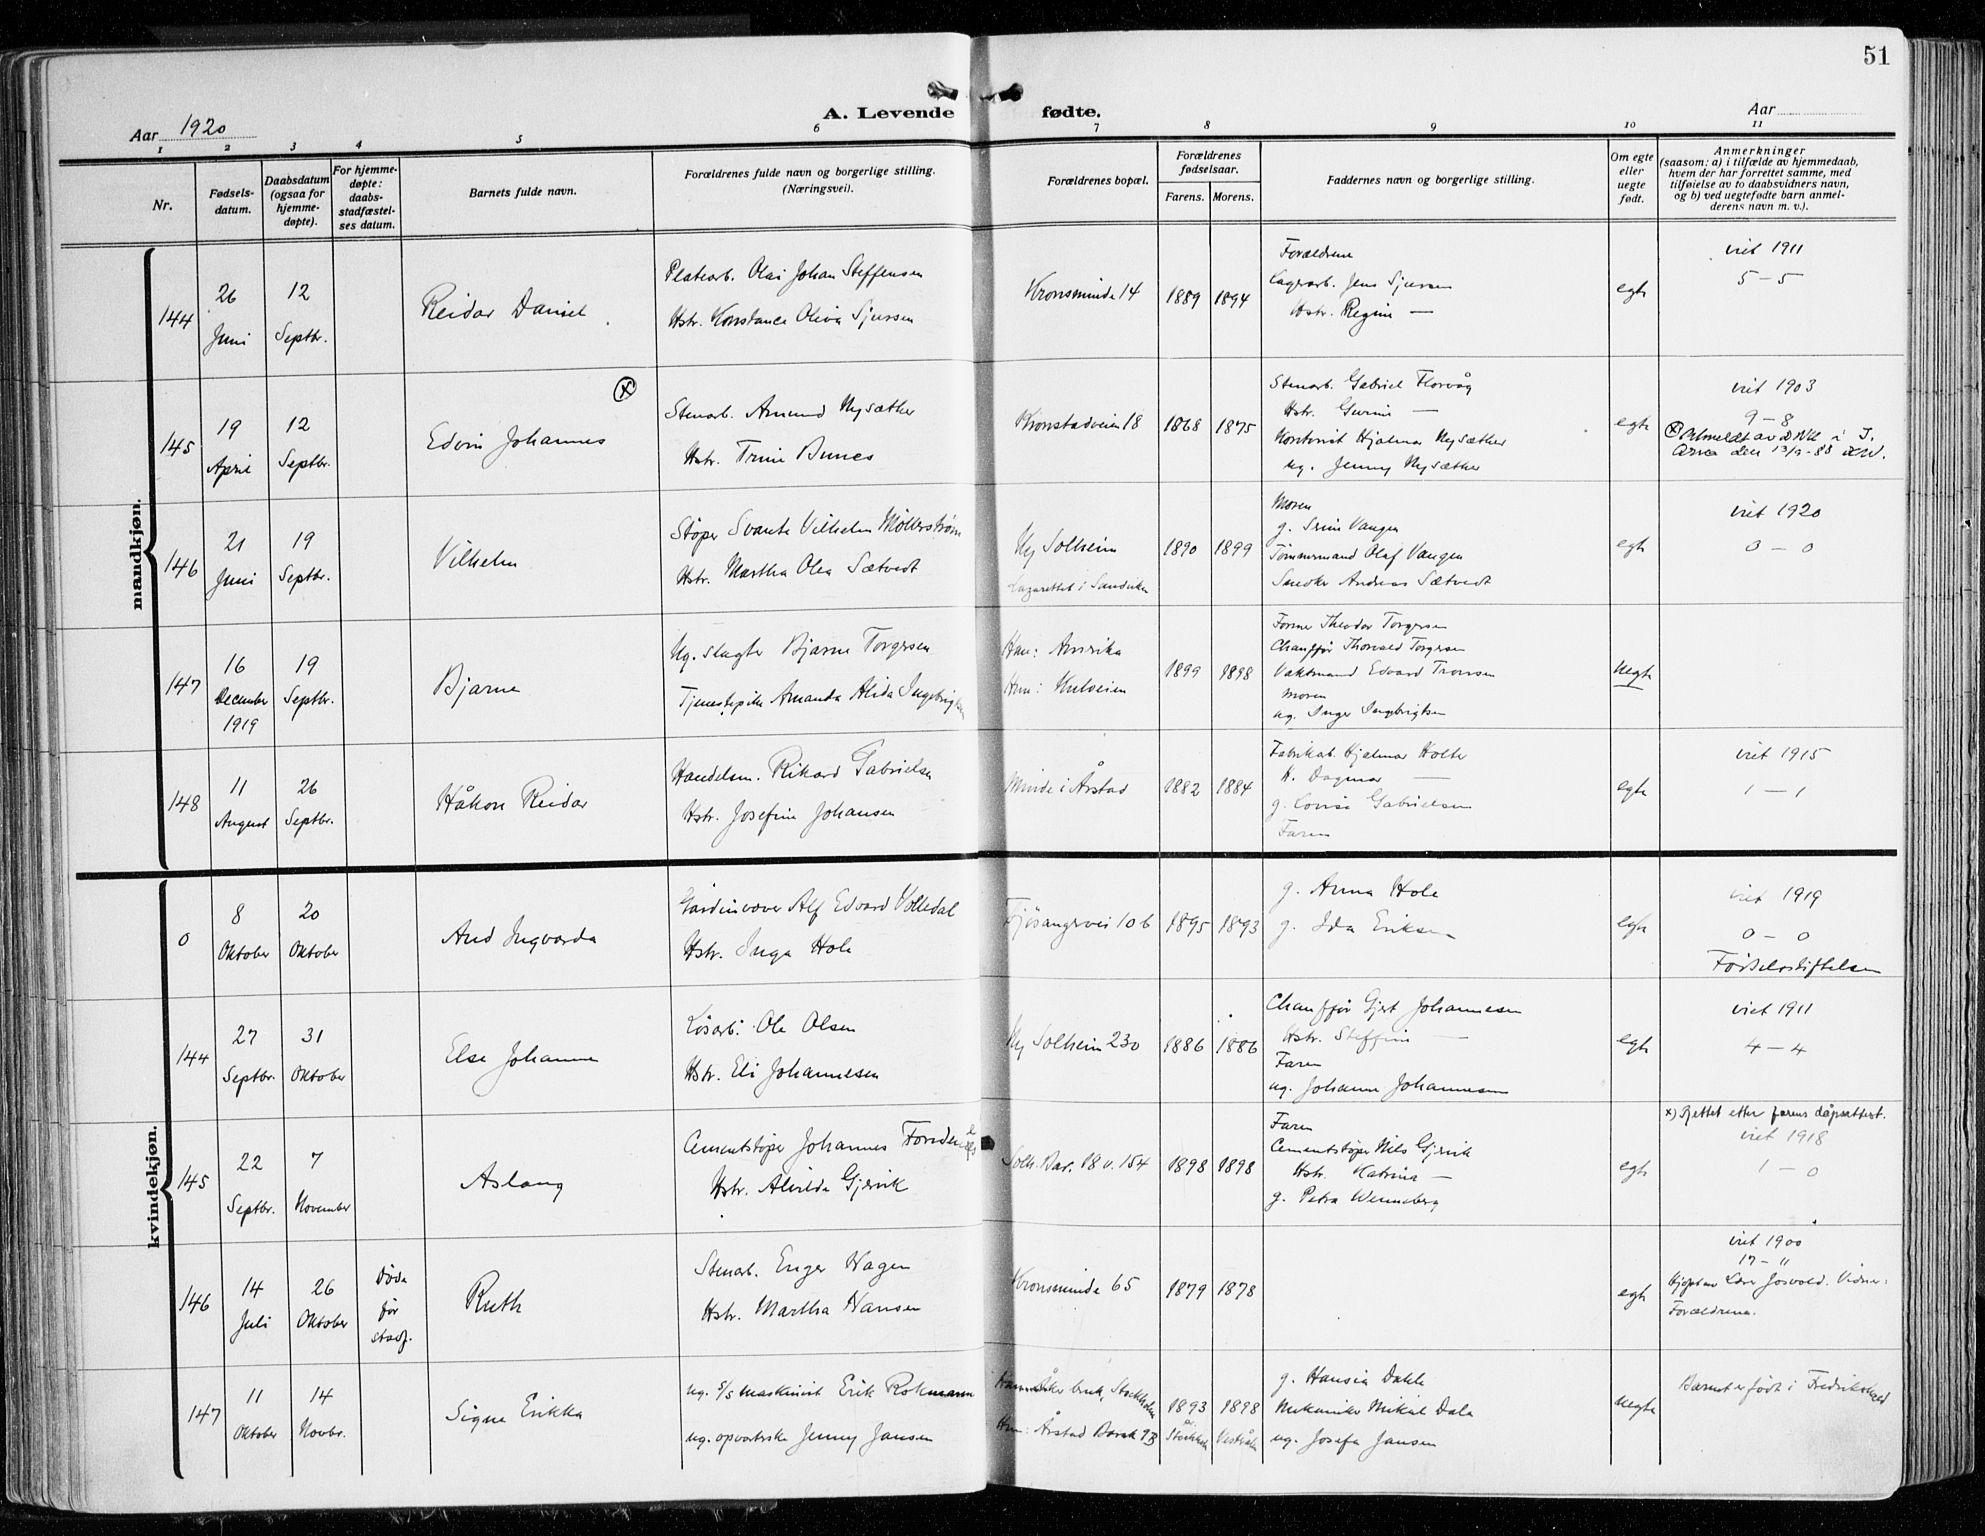 51
Aar 1920
A. Levende fødte.
Aar
1 2 3 4 5 6 7 8 9 10 11
Nr.
Fødsels-
datum.
Daabsdatum
(ogsaa for
hjemme-
døpte).
For hjemme-
døpte:
daabs-
stadfæstel-
ses datum.
Barnets fulde navn.
Forældrenes fulde navn og borgerlige stilling.
(Næringsvei).
Forældrenes bopæl.
Forældrenes
fødselsaar.
Farens. Morens.
Faddernes navn og borgerlige stilling.
Om egte
eller
uegte
født.
Anmerkninger
(saasom: a) i tilfælde av hjemmedaab,
hvem der har forrettet samme, med
tilføielse av to daabsvidners navn,
og b) ved uegtefødte barn anmel-
derens navn m. v.).
mandkjøn.
144
26
Juni
12
Septbr.
Reidar Daniel
Platearb. Olai Johan Steffensen
Hstr. Konstance Oliva Sjursen
Kronsminde 14
1889 1894
Forældrene
Lagerarb. Jens Sjursen
Hstr. Regine —
egte
viet 1911
5 – 5
145
19
April
12
Septbr.
Edvin Johannes
(x)
Stenarb. Amund Nysæther
Hstr. Trine Bunes
Kronstadveien 18
1868 1875
Stenarb. Gabriel Florvåg
Hstr. Gurine —
Kontorist Hjalmar Nysæther
ug. Jenny Nysæther
egte
viet 1903
9 – 8
(x) Utmeldt av DNK i I.
Arna den 13/9-88
146
21
Juni
19
Septbr.
Vilhelm
Støper Svante Vilhelm Møllerstrøm
Hstr. Martha Olea Sætvedt
Ny Solheim
Lazarettet i Sandviken
1890 1899
Moren
g. Srine Vangen
Tømmermand Olaf Vangen
Snedker Andreas Sætvedt
egte
viet 1920
0 – 0
147
16
December
1919
19
Septbr.
Bjarne
Ug. slagter Bjarne Torgersen
Tjenestepike Amanda Alida Ingebrigtsen
Han: Amerika
Hun:
1899 1898
Former Theodor Torgersen
Chauffør Thorvald Torgersen
Vaktmand Edvard Tronsen
Moren
ug. Inger Ingebrigtsen
uegte
148
11
August
26
Septbr.
Håkon Reidar
Handelsm. Rikard Gabrielsen
Hstr. Josefine Johansen
Minde i Årstad
1882 1884
Fabrikab. Hjalmar Holter
H. Dagmar —
g. Lovise Gabrielsen
Faren
egte
viet 1915
1 – 1
kvindekjøn.
0
8
Oktober
20
Oktober
Aud Ingvarda
Gardinvæver Alf Edvard Volledal
Hstr. Inga Hole
Fjøsangervei 106
1895 1893
g. Anna Hole
g. Ida Eriksen
egte
viet 1919
0 – 0
Fødselsstiftelsen
144
27
Septbr.
31
Oktober
Else Johanne
Løsarb. Ole Olsen
Hstr. Eli Johannesen
Ny Solheim 230
1886 1886
Chauffør Gjert Johannesen
Hstr. Steffine —
Faren
ug. Johanne Johannesen
egte
viet 1911
4 – 4
145
22
Septbr.
7
November
Aslaug
Cementstøper Johannes
Hstr. Alvilda Gjervik
Solh. Bar. 18 v. 154
1898 1898
Faren
Cementstøper Nils Gjervik
Hstr. Katrina —
g. Petra Wenneberg
egte
x) Rettet etter farens dåpsattest.
viet 1918
1 – 0
146
14
Juli
26
Oktober
Døde
før
stadf.
Ruth
Stenarb. Enger Hagen
Hstr. Martha Hansen
Kronsminde 65
1879 1878
egte
viet 1900
17 – "
Hjdøpt av Lærer Josvold. Vidner:
Forældrene.
147
11
Oktober
14
Novbr.
Signe Erikka
ug. s/s maskinist Erik Rokmann
ug. opvartske Jenny Jansen
Stockholm
Hun: Årstad Barak 9B
1893 1898
g. Hansia Dahle
Mekaniker Mikal Dale
ug. Josefa Jansen
uegte
Barnet er født i Fredrikshald